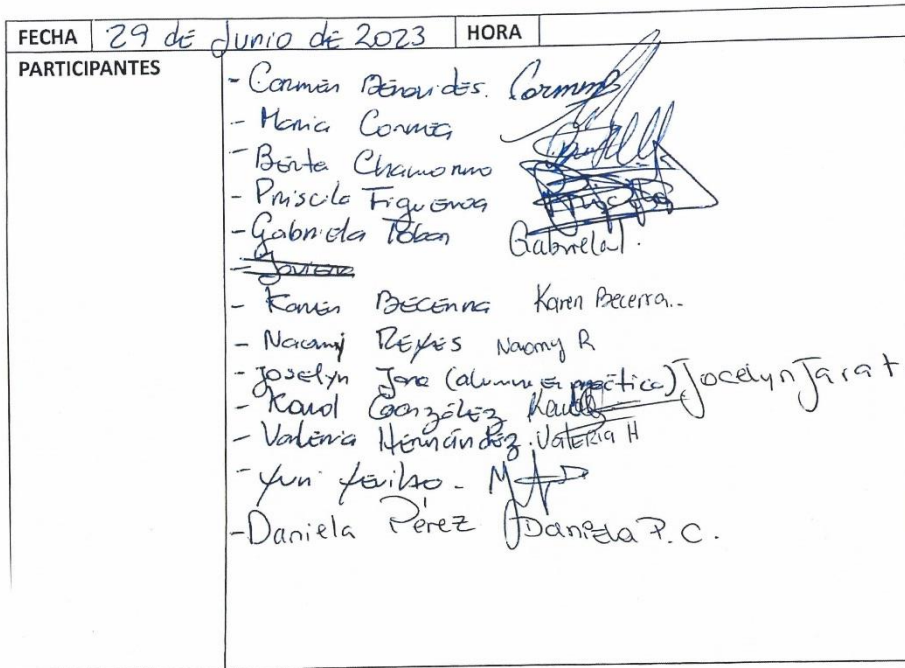 FECHA 29 de Junio de 2023 HORA
PARTICIPANTES
- Carmen Benavides. Carmen
- Maria Correa
- Berta Chamorro
- Priscila Figueroa
- Gabriela Gabriela
- Karen Becerra Karen Becerra..
- Naomy Reyes Naomy R
- Joselyn Jara (alumna en práctica) Jocelyn Jara
- Karol González Karol
- Valeria Hernández. Valeria H
- Yuri
- Daniela Pérez Daniela P. C.